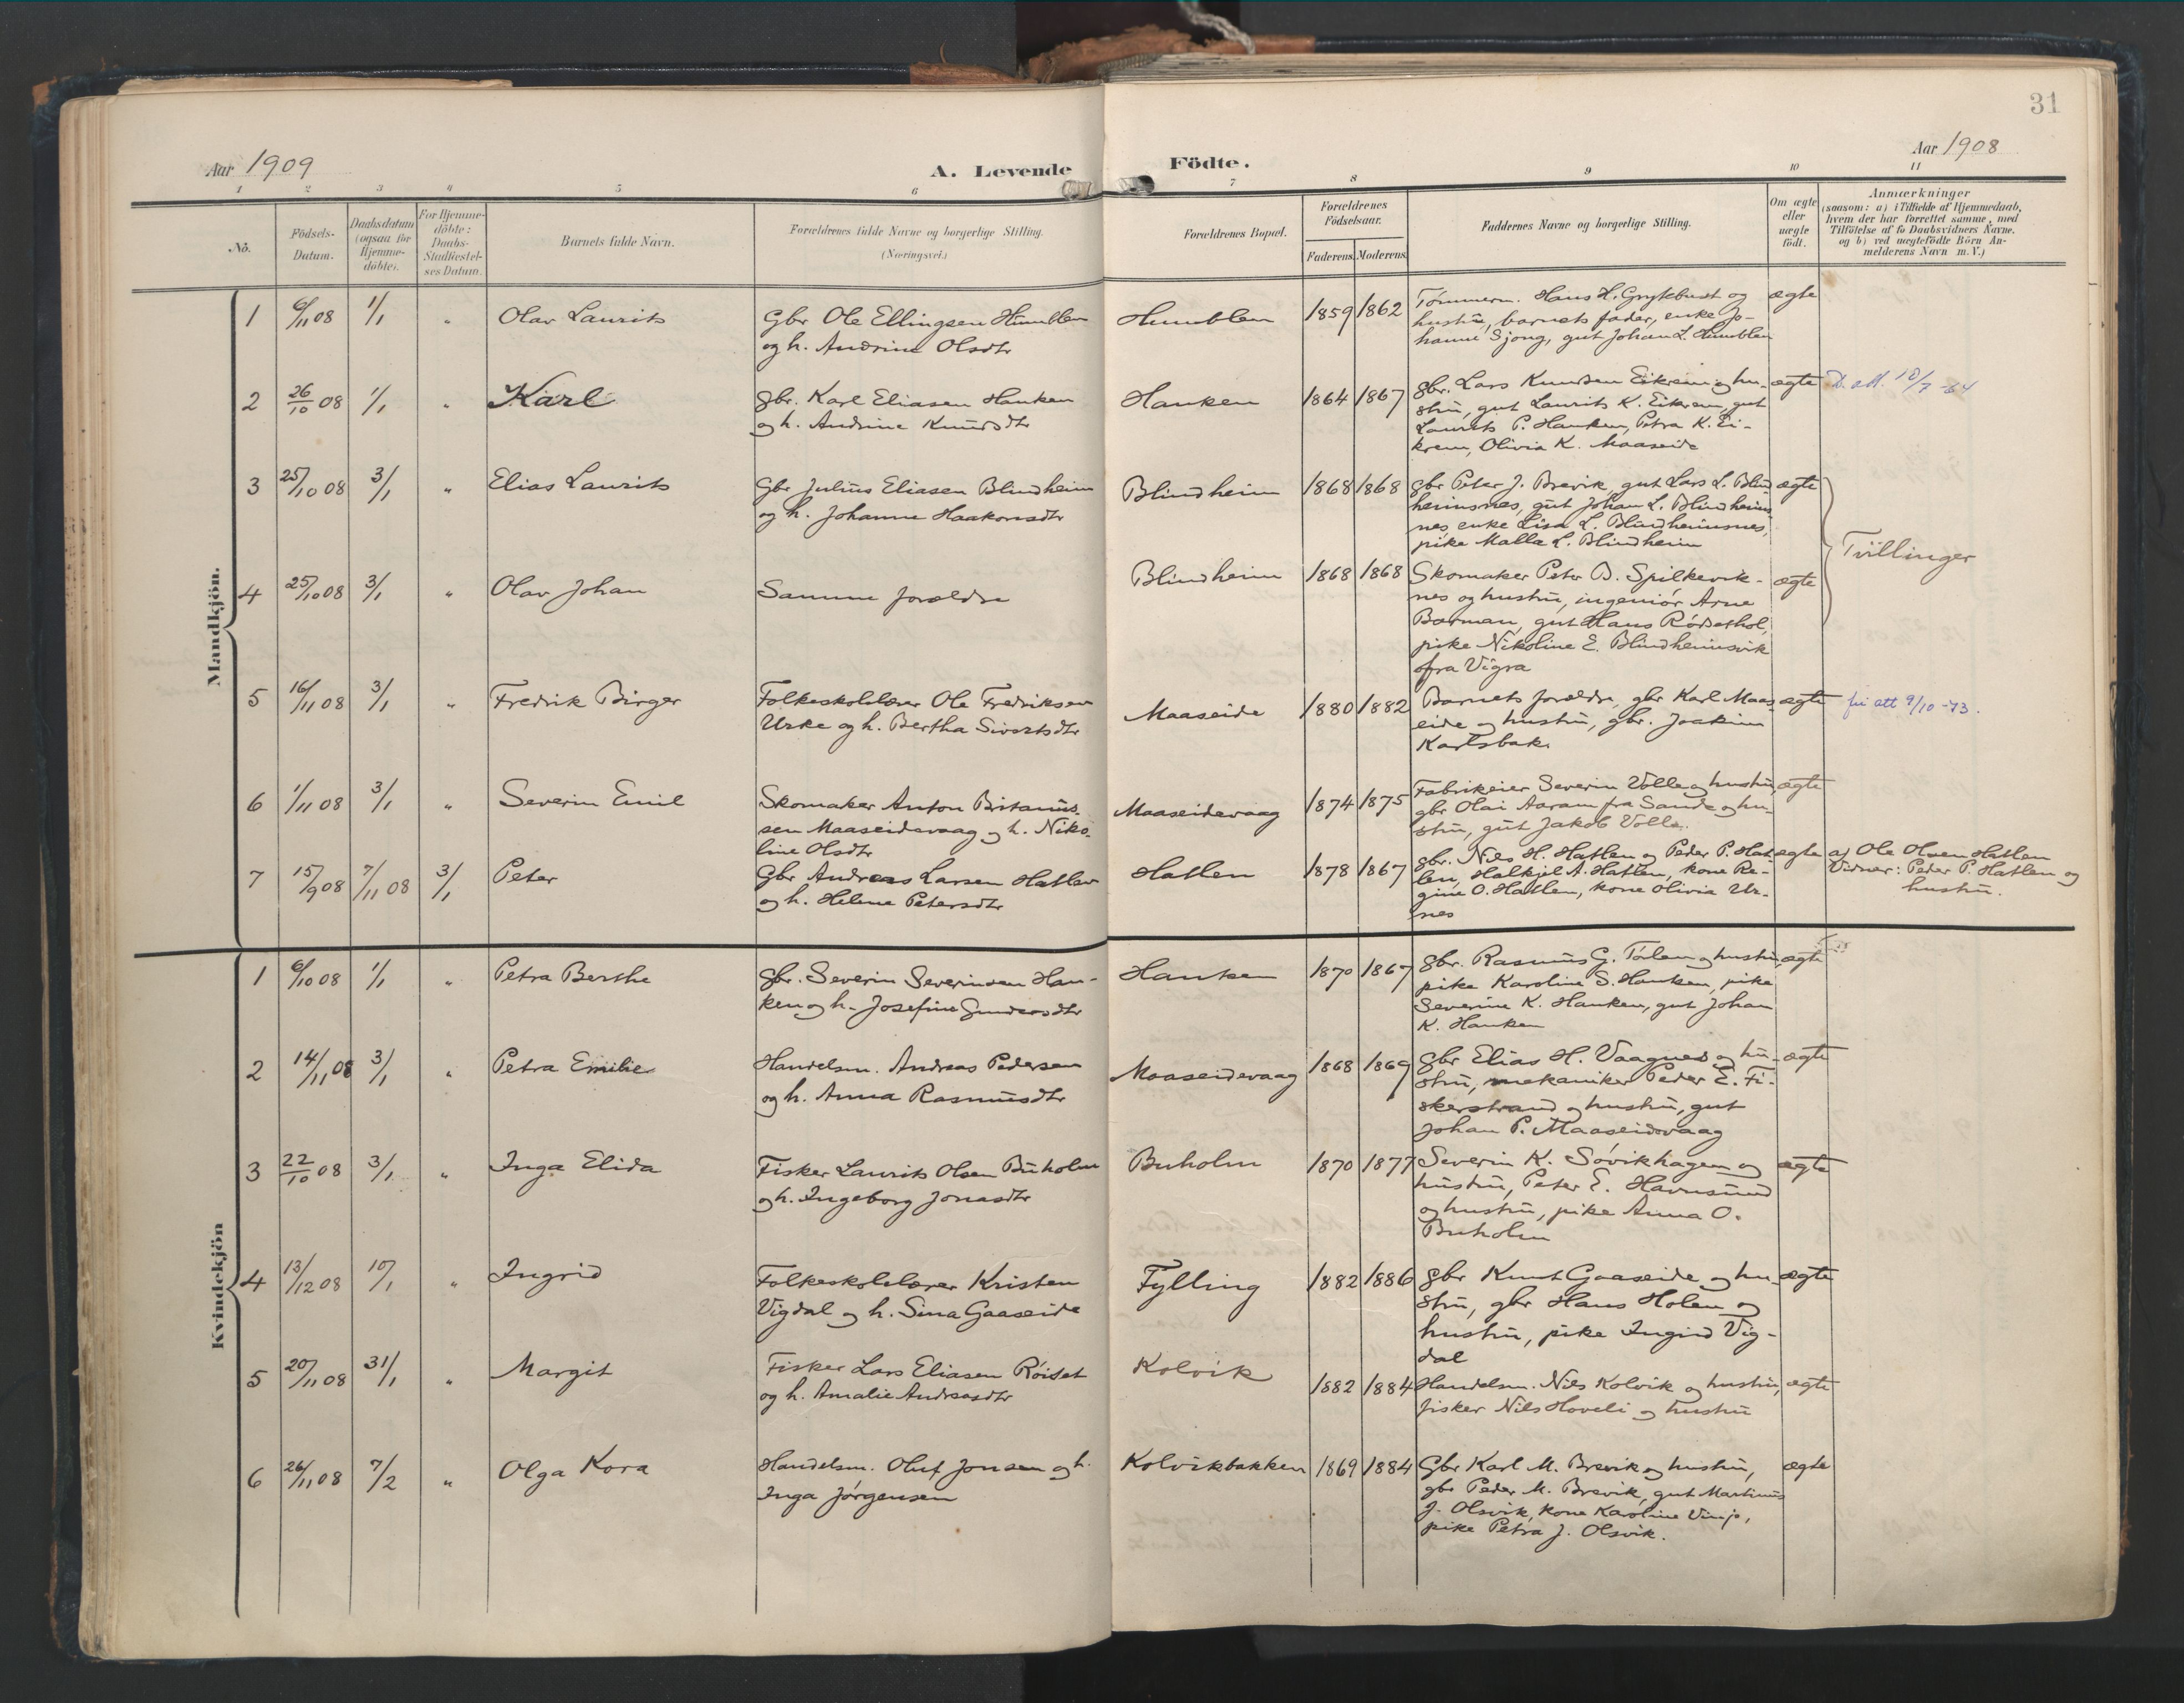 31
Aar 1909
A. Levende
Födte.
Aar 1908
1 2 3 4 5 6 7 8 9 10 11
No.
Födsels-
Datum.
Daabsdatum
(ogsaa for
Hjemme-
döbte).
For Hjemme-
döbte:
Daabs-
Stadfæstel-
ses Datum.
Barnets fulde Navn.
Forældrenes fulde Navne og borgerlige Stilling.
(Næringsvei.)
Forældrenes Bopæl.
Forældrenes
Födselsaar.
Faderens. Moderens.
Faddernes Navne og borgerlige Stilling.
Om ægte
eller
uægte
födt.
Anmærkninger
(saasom: a) i Tilfælde af Hjemmedaab,
hvem der har forrettet samme, med
Tilföielse af to Daabsvidners Navne,
og b) ved uægtefödte Börn An-
melderens Navn m. V.)
Mandkjön.
1 6/11 08 1/1 " Olav Laurits
Gbr Ole Ellingsen Humblen
og h. Andrine Olsdtr
Humblen 1859 1862
Tömmerm. Hans H. Grytebust og
hustru, barnets fader, enke Jo-
hanne Sjong, gut Johan L. Humblen
ægte
2 26/10 08 1/1 " Karl
gbr. Karl Eliasen Hanken
og h. Andrine Knudsdtr
Hanken 1864 1867
gbr. Lars Knudsen Eikrem og hu-
stru, gut Laurits K. Eikrem, gut
Laurits P. Hanken, Petra K. Ei-
krem, Olivia K. Maaseide
ægte
D. att. 10/7 -64
3 25/10 08 3/1 " Elias Laurits
Gbr Julius Eliasen Blindheim
og h. Johanne Haakonsdtr
Blindheim 1868 1868
gbr Peter J. Brevik, gut Lars L. Blind-
heimsnes, gut Johan L. Blindheims
nes, enke Lisa L. Blindheimsnes,
pike Malla L. Blindheim
ægte
Tvillinger
4 25/10 08 3/1 " Olav Johan
Samme forældre
Blindheim 1868 1868
Skomaker Peter B. Spilkevik-
nes og hustru, ingeniör Arne
Barman, gut Hans Rödsethol,
pike Nikoline E. Blindheimsvik
fra Vigra
ægte
5 16/11 08 3/1 " Fredrik Birger
Folkeskolelærer Ole Fredriksen
Urke og h. Bertha Sivertsdtr
Maaseide 1880 1882
Barnets forældre, gbr Karl Maas
eide og hustru, gbr. Joakim
Karlsbak.
ægte
fri att 9/10 -73.
6 1/11 08 3/1 " Severin Emil
Skomaker Anton Britanus-
sen Maaseidevaag og h. Niko-
line Olsdtr
Maaseidevaag 1874 1875
Fabrikeier Severin Volle og hustru,
gbr Olai Aaram fra Sande og hu-
stru, gut Jakob Volle.
ægte
7 15/9 08 7/11 08 3/1 Peter
Gbr Andreas Larsen Hatlen
og h. Helene Petersdtr
Hatlen 1878 1867
gbr. Nils H. Hatlen og Peder P. Hat-
len, Halkjel A. Hatlen, kone Re-
gine O. Hatlen, kone Olivia Ur-
nes
ægte
a) Ole Olsen Hatlen
Vidner: Peder P. Hatlen og
hustru.
Kvindekjön
1 6/10 08 1/1 " Petra Berthe
gbr. Severin Severinsen Han-
ken og h. Josefine Gundersdtr
Hanken 1870 1867
gbr. Rasmus G. Törlen og hustru,
pike Karoline S. Hanken, pike
Severine K. Hanken, gut Johan
K. Hanken
ægte
2 14/11 08 3/1 " Petra Emilie
Handelsm. Andreas Pedersen
og h. Anna Rasmusdtr
Maaseidevaag 1868 1869
gbr Elias H. Vaagnes og hu-
stru, mekaniker Peder E. Fi-
skerstrand og hustru, gut
Johan P. Maaseidevaag
ægte
3 22/10 08 3/1 " Inga Elida
Fisker Laurits Olsen Buholm
og h. Ingeborg Jonasdtr
Buholm 1870 1877
Severin K. Sövikhagen og
hustru, Peter E. Havnsund
og hustru, pike Anna O.
Buholm
ægte
4 13/12 08 10/1 " Ingrid
Folkeskolelærer Kristen
Vigdal og h. Sina Gaaseide
Fylling 1882 1886
gbr Knut Gaaseide og hu-
stru, gbr Hans Holen og
hustru, pike Ingrid Vig-
dal
ægte
5 20/11 08 31/1 " Margit
Fisker Lars Eliasen Röiset
og h. Amalie Andreasdtr
Kolvik 1882 1884
Handelsm. Nils Kolvik og hustru,
fisker Nils Hoveli og hustru
ægte
6 26/11 08 7/2 " Olga Kora
Handelsm. Oluf Jonsen og h.
Inga Jörgensen
Kolvikbakken 1869 1884
Gbr Karl M. Brevik og hustru,
gbr Peder M. Brevik, gut Martinus
J. Olsvik, kone Karoline Vinje,
pike Petra J. Olsvik.
ægte